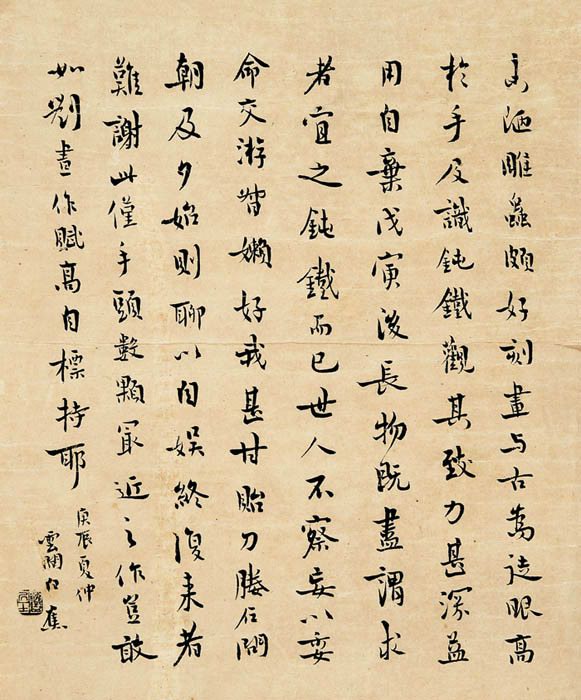 洒雕蟲頗好刻畫与古為徒眼高
於手及識鈍鐵觀其致力甚深益
用自棄戊寅後長物既盡謂求
者宜之鈍鐵而已世人不察妄以委
命交游皆嬾好我甚甘貽刀媵石
朝及夕始則聊以自娱終復来者
難謝此僅手頭數顆冣近之作豈敢
如劉晝作賦高自標持耶
庚辰夏仲
雲間白蕉